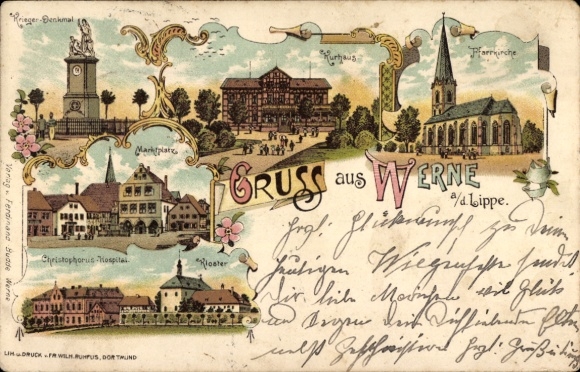 Krieger-Denkmal
Kurhaus
Pfarrkirche
Marktplatz
GRUSS aus WERNE
a/d. Lippe.
Christophorus-Hospital.
Kloster
Verlag v. Ferdinand Budde Werne
LITH. u. DRUCK v. FR. WILH. RUHFUS, DORTMUND
Hrzl. Glückwunsch zu Deinem
heutigen Wiegenfeste sendet
Dir, liebe viel Glück
und Segen
nebst Geschwistern Hrzl. Grüße